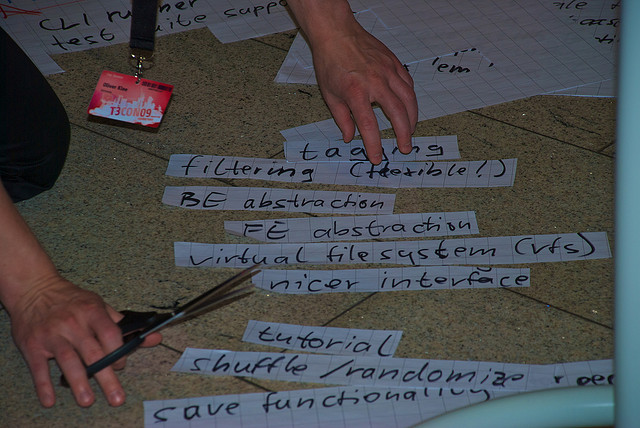 CLI runner
test suite
'em
tagging
filtering (flexible!)
BE abstraction
FE abstraction
virtual filesystem (vfs)
nicer interface
tutorial
shuffle/randomize
save functionality
T3CON09